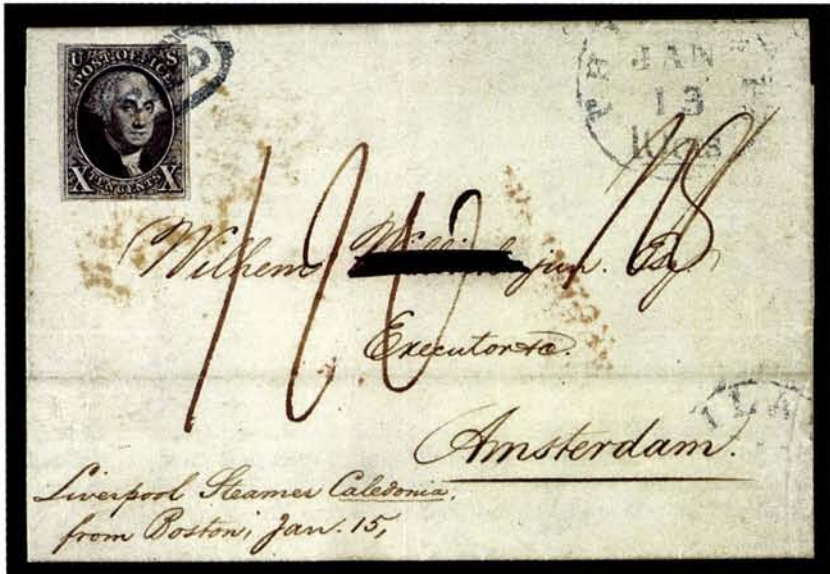 U S
POST OFFICE
X TEN CENTS X
JAN
13
10 cts
Wilhem jun. Esq
Executor &c.
Amsterdam.
Liverpool Steamer Caledonia,
from Boston, Jan. 15,